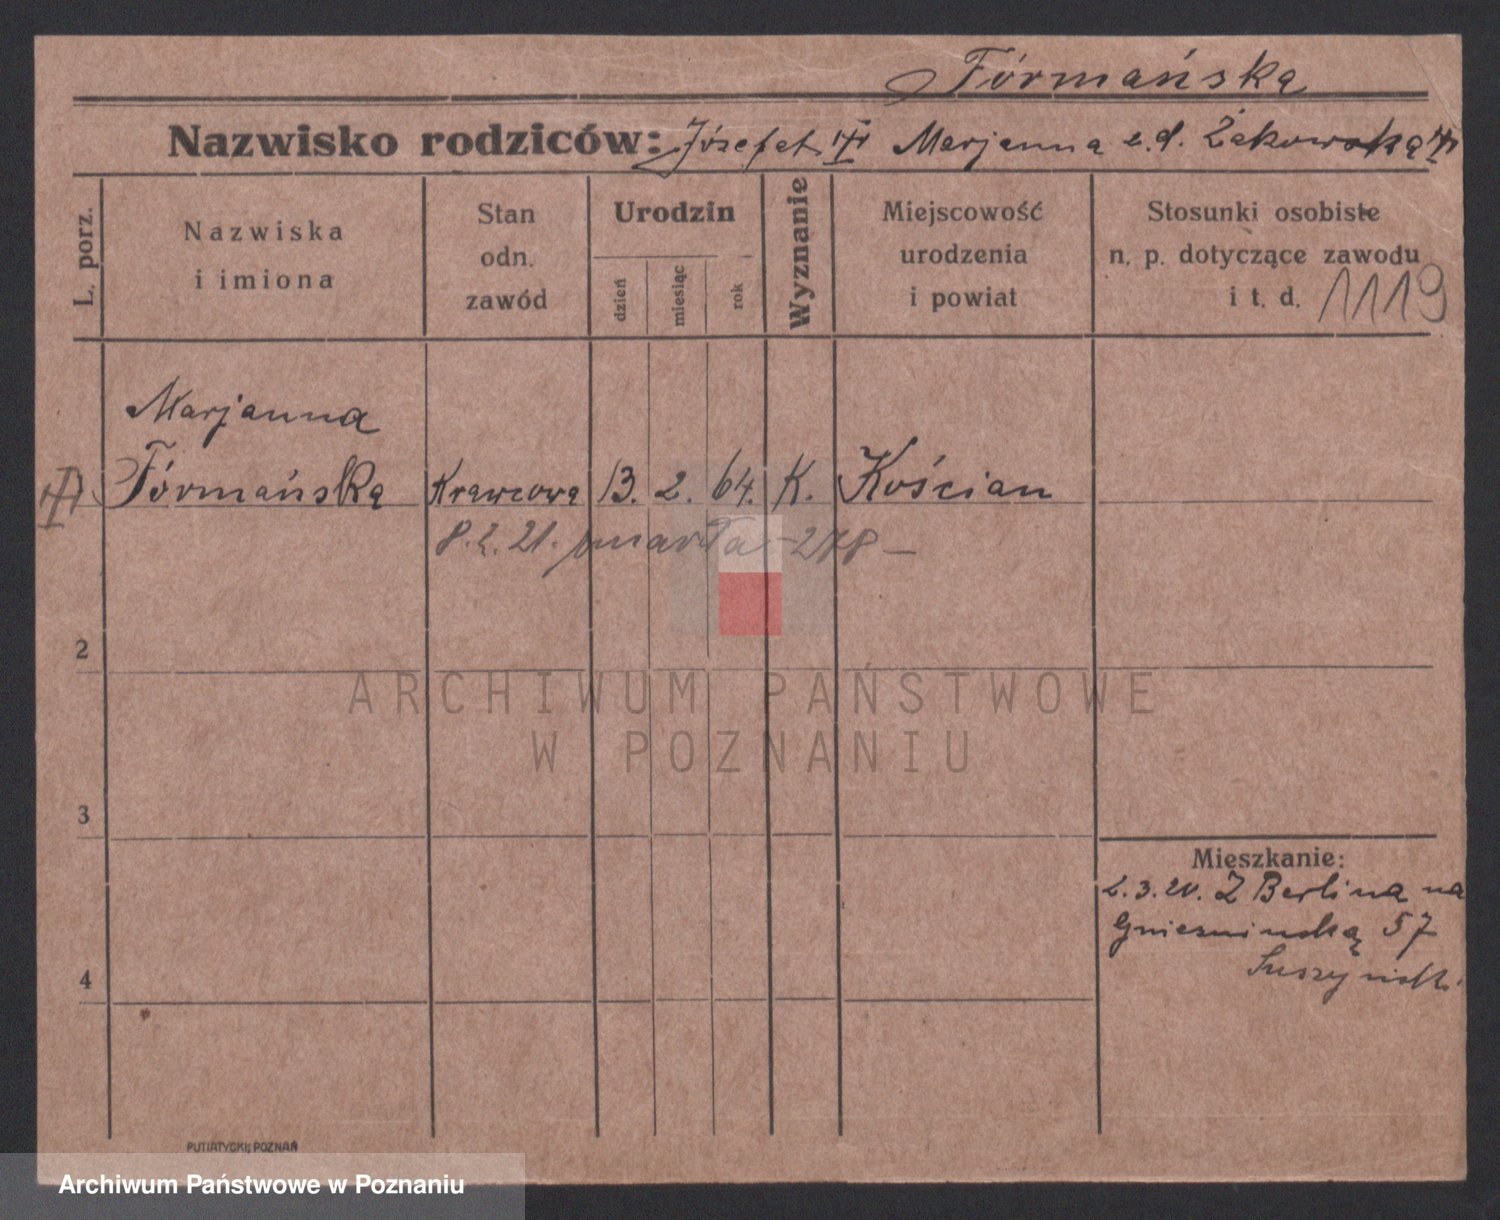 Fórmańska
Nazwisko rodziców: Józefat Marjanna z.d. Żakowska
L. porz.
Nazwiska
i imiona
Stan
odn.
zawód
Urodzin
dzień
miesiąc
rok
Wyznanie
Miejscowość
urodzenia
i powiat
Stosunki osobiste
n. p. dotyczące zawodu
i t. d. 1119
Marjanna
Fórmańska Krawcowa 13. 2. 64. K. Kościan
8.2.21. zmarła - 278 -
2
ARCHIWUM PAŃSTWOWE
W POZNANIU
3
Mieszkanie:
2.3.20. Z Berlina na
Gnieznińską 57
4
PUTIATYCKI, POZNAŃ
Archiwum Państwowe w Poznaniu